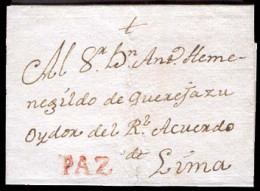 +
Al Sr. Dn. Anto. Herme-
negildo de Querejazu
Oydor del Rl. Acuerdo
de
PAZ Lima